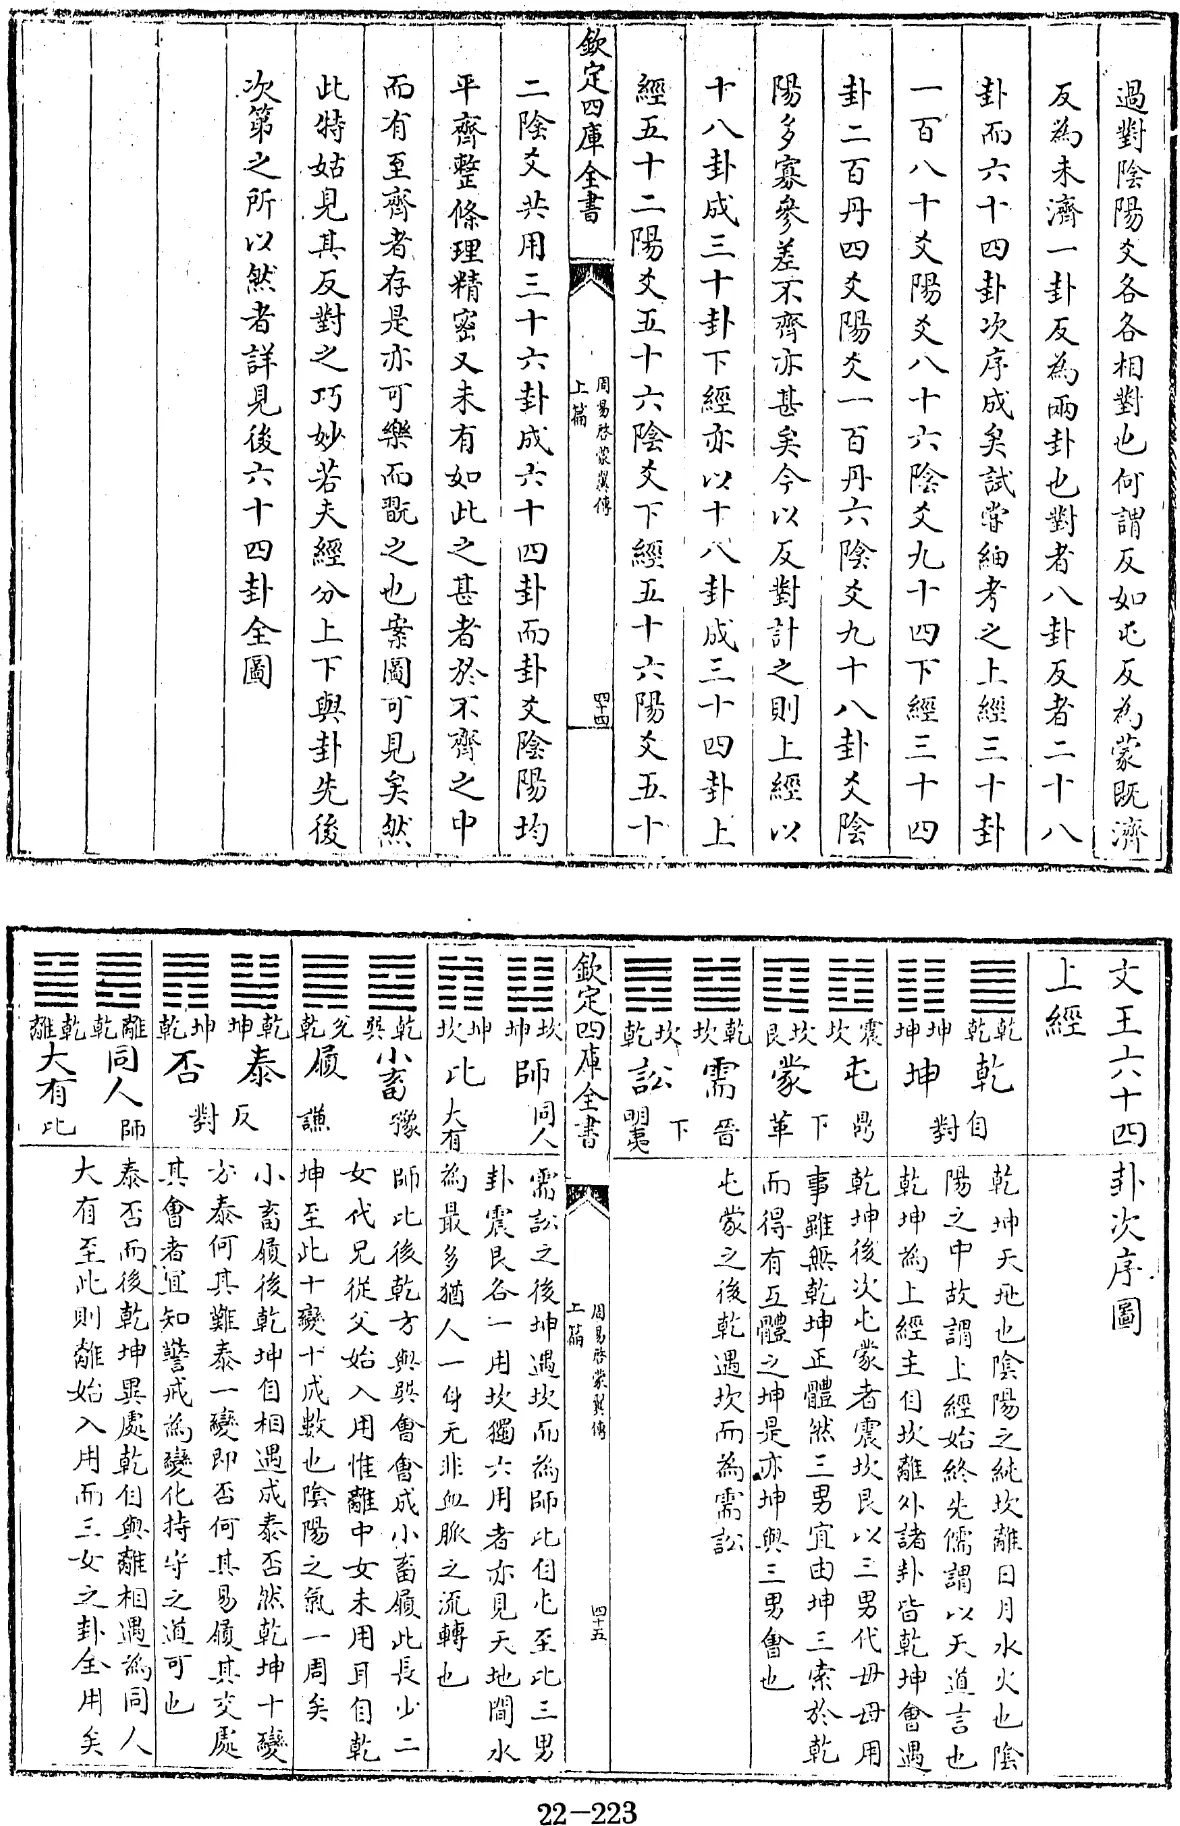 過對陰陽爻各各相對也何謂反如屯反為蒙既濟
反為未濟一卦反為兩卦也對者八卦反者二十八
卦而六十四卦次序成矣試嘗紬考之上經三十卦
一百八十爻陽爻八十六陰爻九十四下經三十四
卦二百單四爻陽爻一百單六陰爻九十八卦爻陰
陽多寡參差不齊亦甚矣今以反對計之則上經以
十八卦成三十卦下經亦以十八卦成三十四卦上
經五十二陽爻五十六陰爻下經五十六陽爻五十
欽定四庫全書
周易啓蒙翼傳
上篇
四十四
二陰爻共用三十六卦成六十四卦而卦爻陰陽均
平齊整條理精密又未有如此之甚者於不齊之中
而有至齊者存是亦可樂而翫之也案圖可見矣然
此特姑見其反對之巧妙若夫經分上下與卦先後
次第之所以然者詳見後六十四卦全圖
文王六十四卦次序圖
上經
乾乾 乾
坤坤 坤
自對
乾坤天地也陰陽之純坎離日月水火也陰
陽之中故謂上經始終先儒謂以天道言也
乾坤為上經主自坎離外諸卦皆乾坤會遇
震坎 屯 鼎
下
艮坎 蒙 革
乾坤後次屯蒙者震坎艮以三男代母母用
事雖無乾坤正體然三男宜由坤三索於乾
而得有互體之坤是亦坤與三男會也
乾坎 需 晉
下
乾坎 訟 明夷
屯蒙之後乾遇坎而為需訟
欽定四庫全書
周易啓蒙翼傳
上篇
四十五
坎坤 師 同人
坤坎 比 大有
需訟之後坤遇坎而為師比自屯至比三男
卦震艮各一用坎獨六用者亦見天地間水
為最多猶人一身无非血脈之流轉也
乾巽 小畜 豫
兌乾 履 謙
師比後乾方與巽會會成小畜履此長少二
女代兄從父始入用惟離中女未用耳自乾
坤至此十變十成數也陰陽之氣一周矣
乾坤 泰
坤乾 否
反對
小畜履後乾坤自相遇成泰否然乾坤十變
方泰何其難泰一變即否何其易履其交處
其會者宜知警戒為變化持守之道可也
離乾 同人 師
乾離 大有 比
泰否而後乾坤異處乾自與離相遇為同人
大有至此則離始入用而三女之卦全用矣
22-223